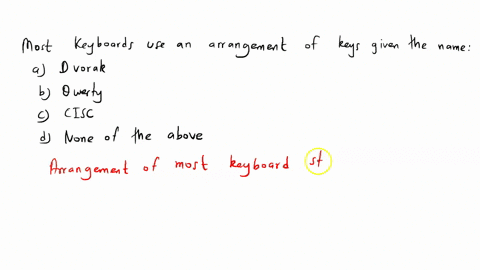 Most Keyboards use an arrangement of keys given the name:
a) Dvorak
b) Qwerty
c) CISC
d) None of the above
Arrangement of most keyboard st